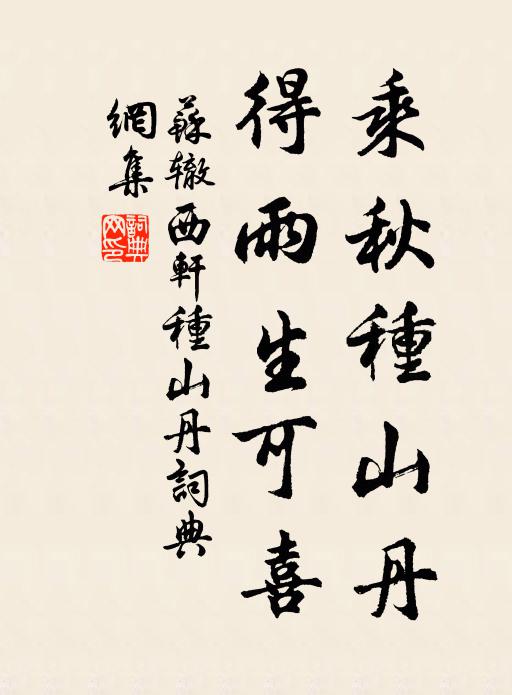 乘秋種山丹
得雨生可喜
蘇辙西軒種山丹詞典
網集
詞典網印